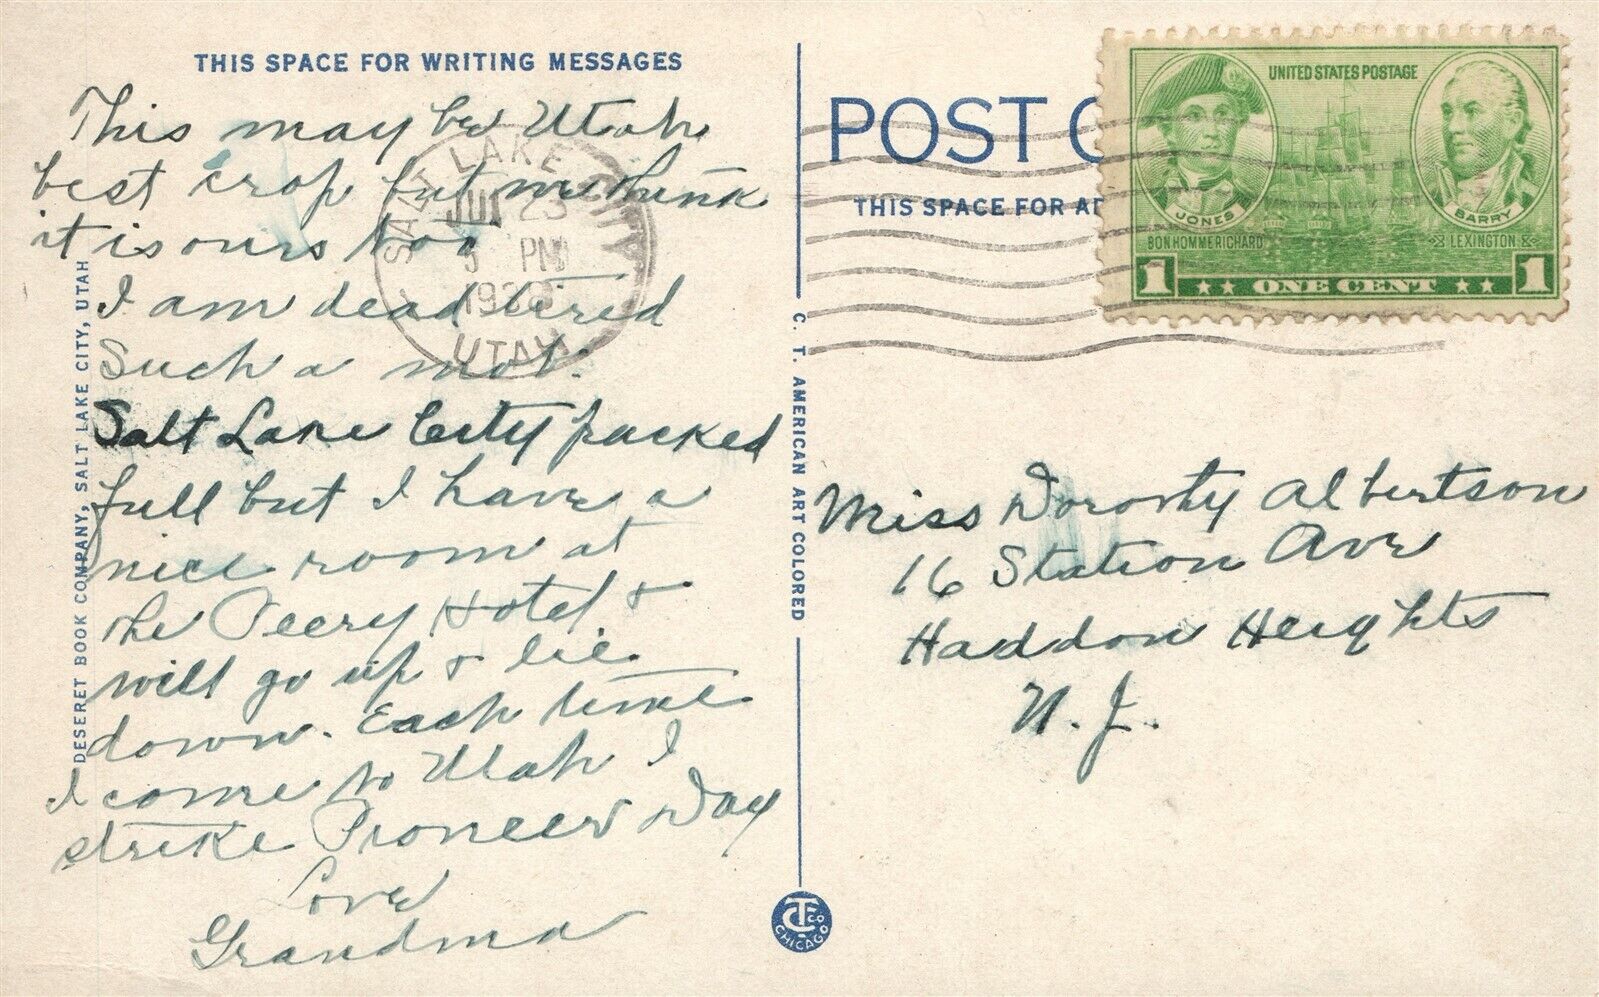 THIS SPACE FOR WRITING MESSAGES
This may be Utah
best crop but we think
it is ours too
I am dead tired
Such a mob.
Salt Lake City packed
full but I have a
nice room at
the Peery Hotel &
will go up & lie
down. Each time
I come to Utah I
strike Pioneer Day
Love
Grandma
DESERET BOOK COMPANY, SALT LAKE CITY, UTAH
SALT LAKE CITY
JUL 23
PM
UTAH
C. T. AMERICAN ART COLORED
C T Co
CHICAGO
POST C
THIS SPACE FOR AD
UNITED STATES POSTAGE
JONES
BARRY
BON HOMME RICHARD
LEXINGTON
1 ONE CENT 1
Miss Dorothy Albertson
16 Station Ave
Haddon Heights
N. J.